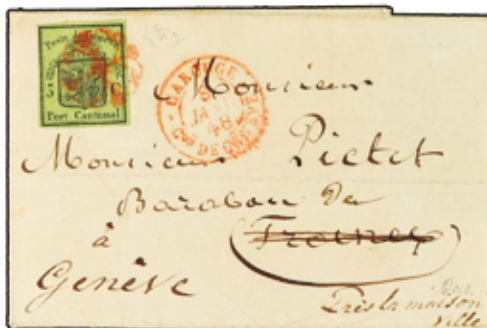 Poste de Genève
5 C
Port Cantonal
CAROUGE
8
48
Con DE GENÈVE
Monsieur
Monsieur Pictet
Baraban de
à
Genève
Près la maison
Ville